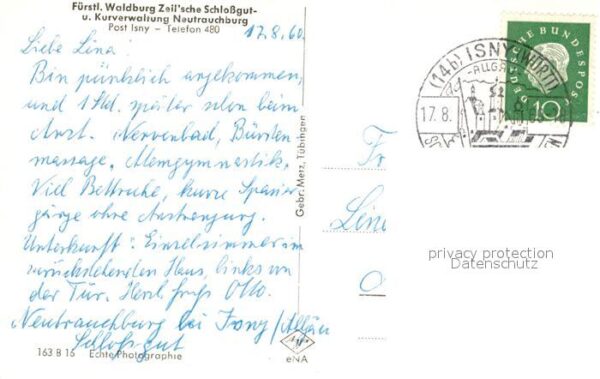 Fürstl. Waldburg Zeil'sche Schloßgut-
u. Kurverwaltung Neutrauchburg
Post Isny – Telefon 480
17.8.60.
Liebe Lina!
Bin pünktlich angekommen,
und 1 Std. später schon beim
Arzt. Nervenbad, Bürsten
massage, Atemgymnastik.
Viel Bettruhe, kurze Spazier
gänge ohne Anstrengung.
Unterkunft: Einzelzimmer im
zurückstehenden Haus, links von
der Tür. Herzl. Otto.
Neutrauchburg bei Isny/Allgäu
Schloss-gut
163 B 16 Echte Photographie
eNA
Gebr. Metz, Tübingen
(14b) ISNY (WÜRTT)
17.8.
DEUTSCHE BUNDESPOST
10
privacy protection
Datenschutz